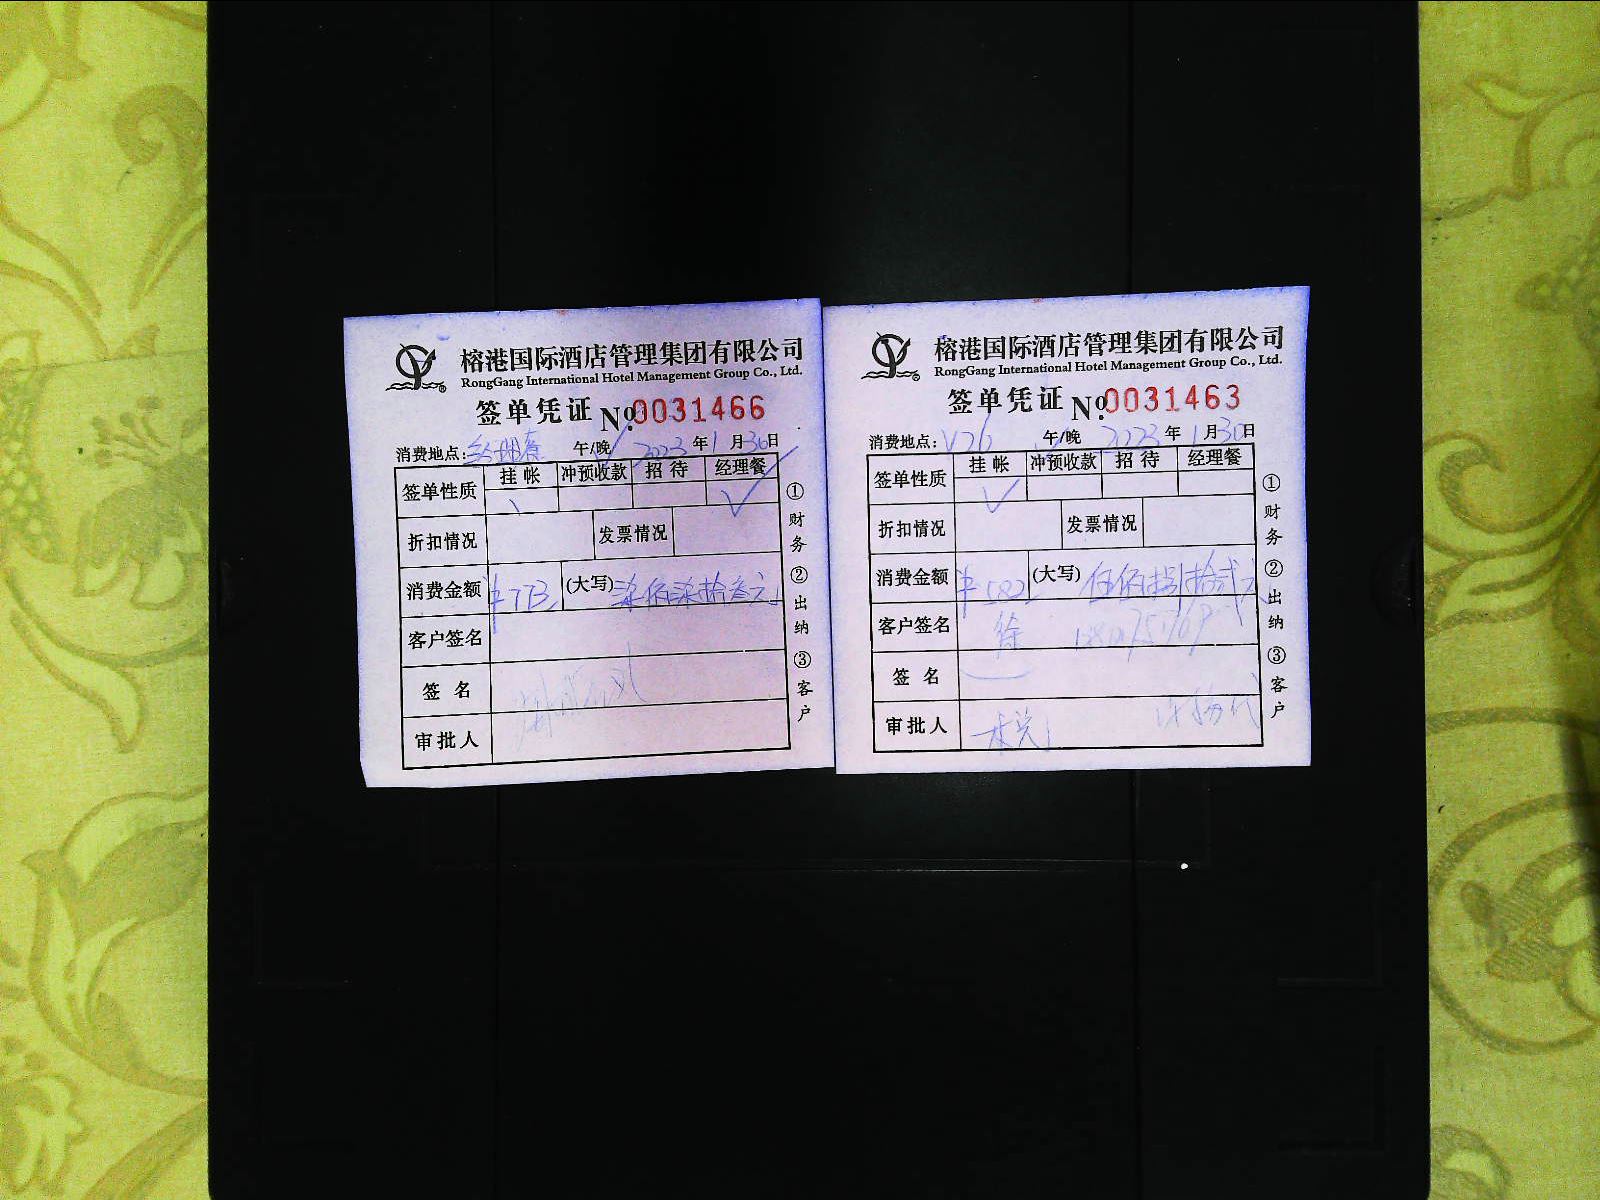 榕港国际酒店管理集团有限公司
RongGang International Hotel Management Group Co., Ltd.
签单凭证 №.0031466
消费地点: 经理餐 午/晚 2023年1月30日
签单性质 挂帐 冲预收款 招待 经理餐
折扣情况 发票情况
消费金额 ¥773 (大写) 柒佰柒拾叁元
客户签名
签名
审批人
①财务 ②出纳 ③客户
榕港国际酒店管理集团有限公司
RongGang International Hotel Management Group Co., Ltd.
签单凭证 №.0031463
消费地点: V26 午/晚 2023年1月30日
签单性质 挂帐 冲预收款 招待 经理餐
折扣情况 发票情况
消费金额 ¥582 (大写) 伍佰捌拾贰元
客户签名 徐
签名
审批人
①财务 ②出纳 ③客户